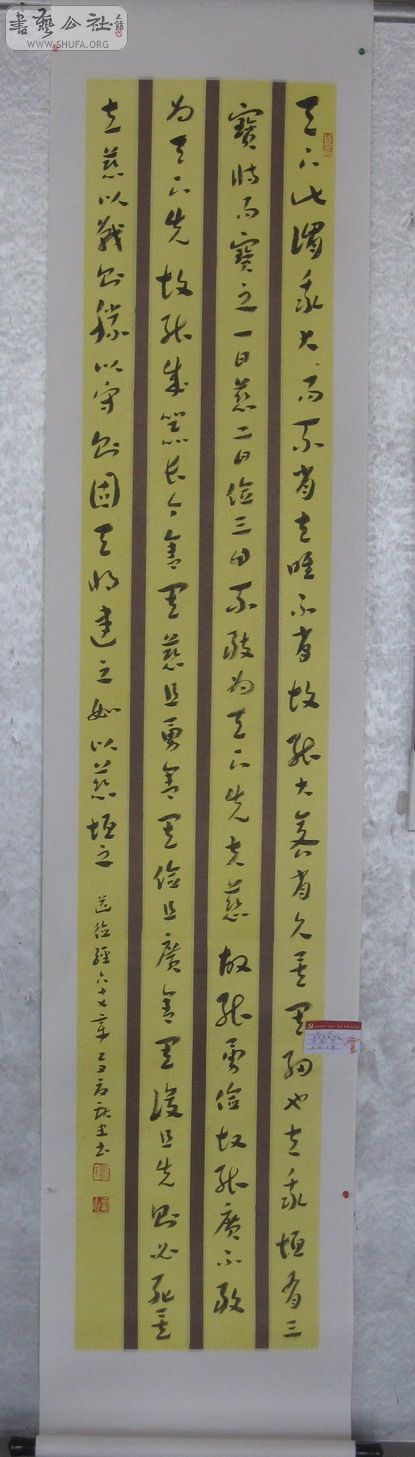 書藝公社
WWW.SHUFA.ORG
天下皆謂我大而不肖夫唯不肖故能大若肖久矣其細也夫我恆有三
寶持而寶之一曰慈二曰儉三曰不敢為天下先夫慈故能勇儉故能廣不敢
為天下先故能成器長今舍其慈且勇舍其儉且廣舍其後且先則必死矣
夫慈以戰則勝以守則固天將建之如以慈垣之
道德經六十七章